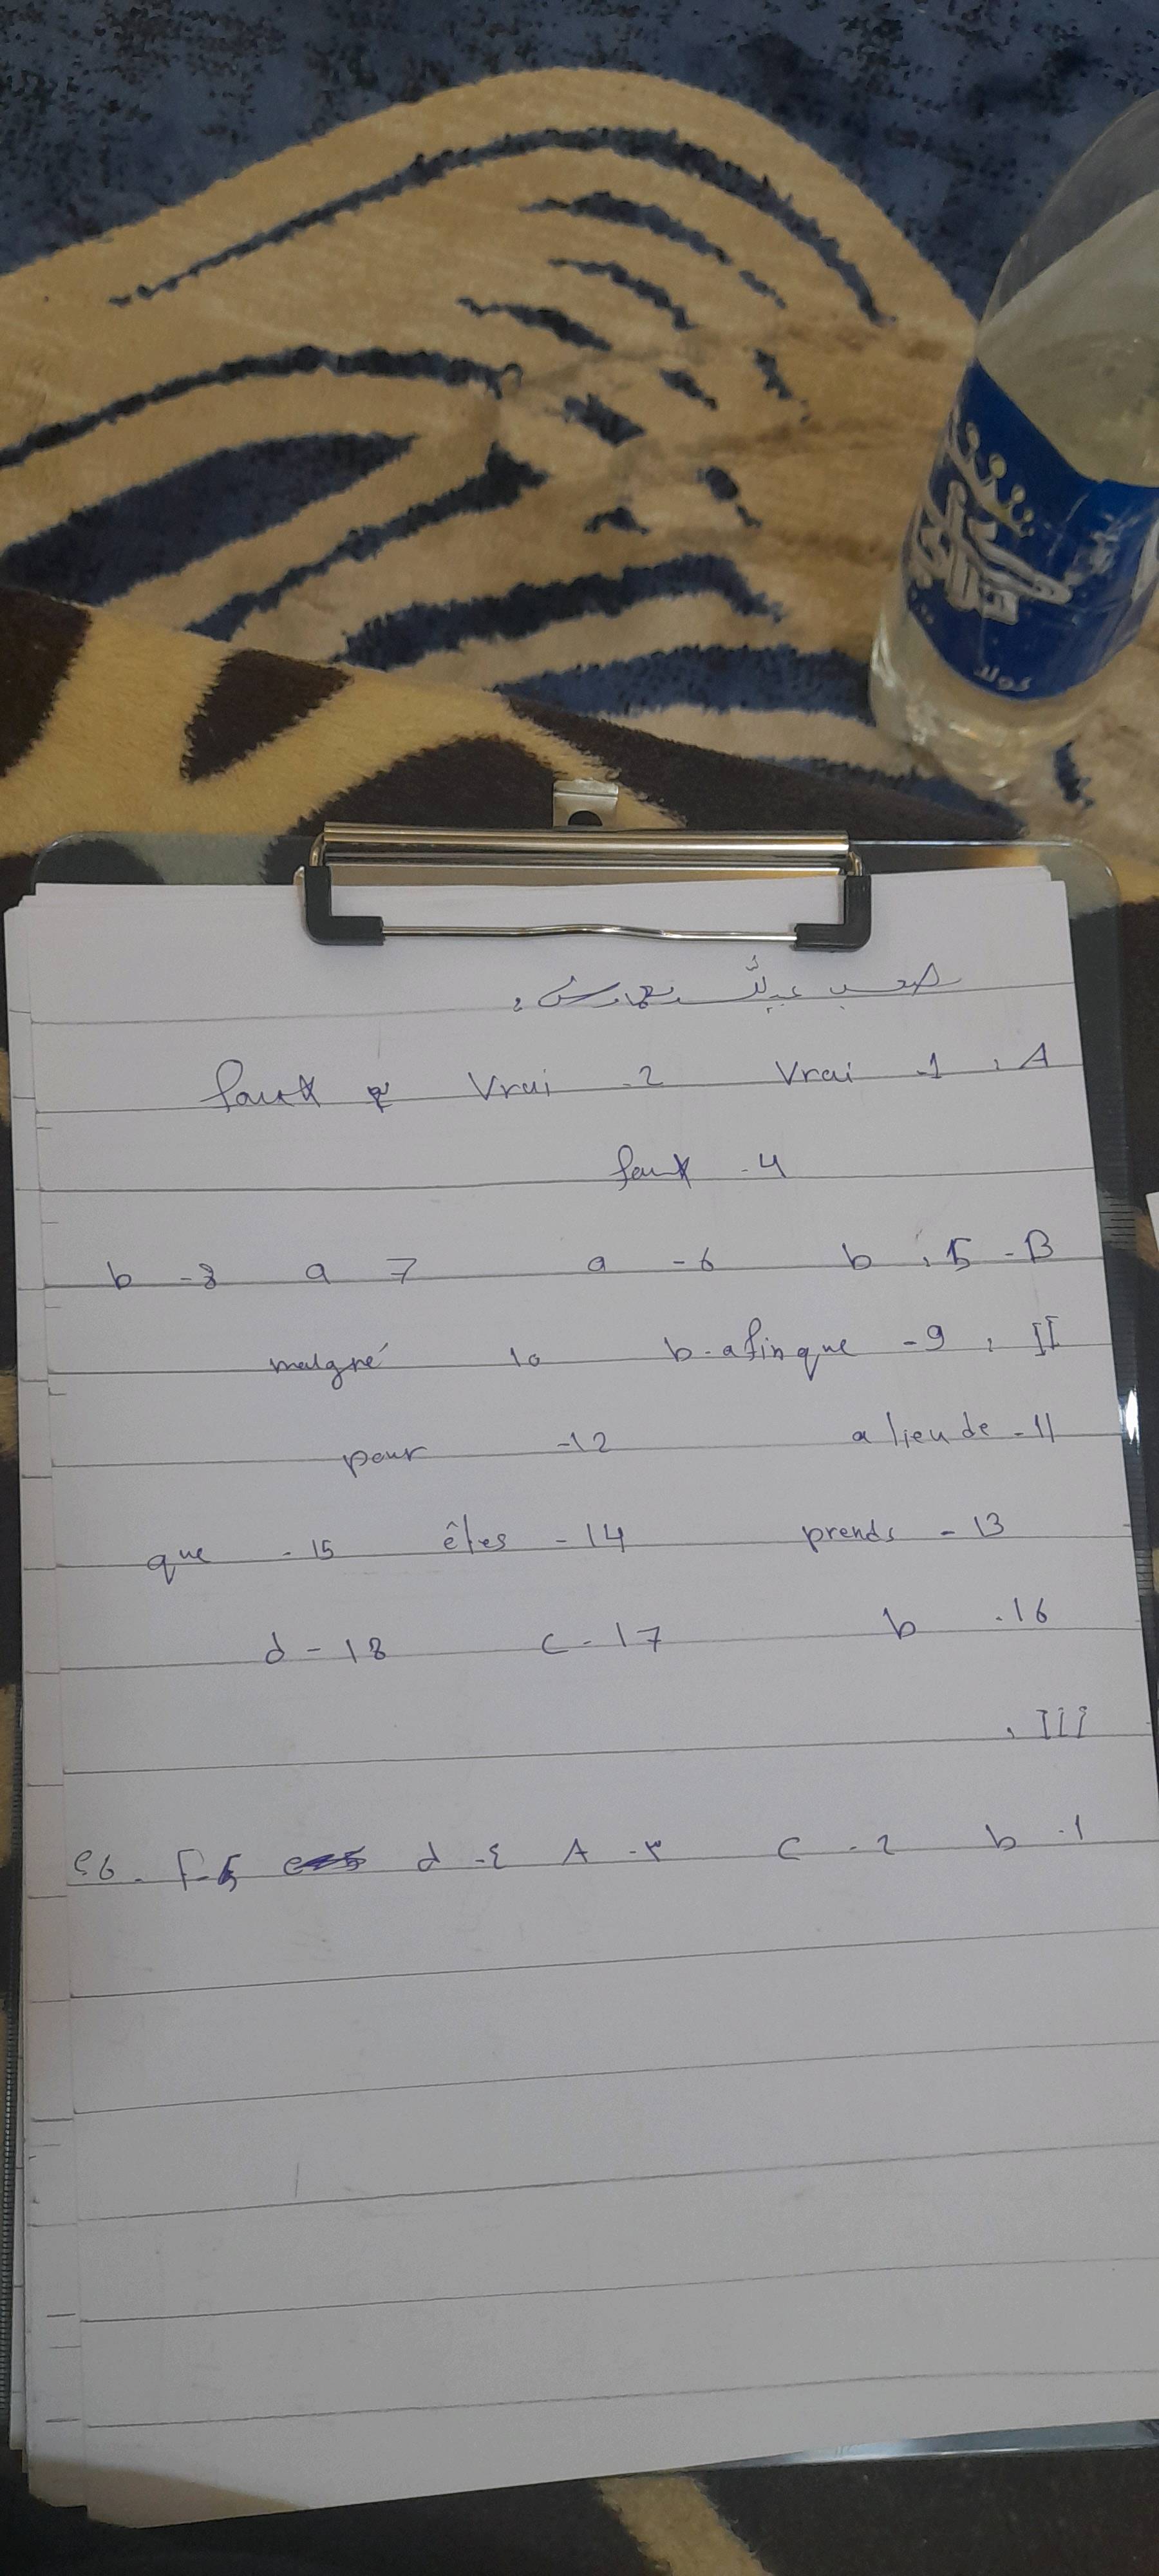 كولد
A . 1- Vrai 2- Vrai faux
4- faux
B- 5. b 6- a 7 a 8- b
II . 9- b-afin que 10 malgré
11- a lieu de 12- pour
13- prends 14- êtes 15- que
16. b 17- c 18- d
III .
1- b 2- c ٣- A ٤- d 5-F 6. e